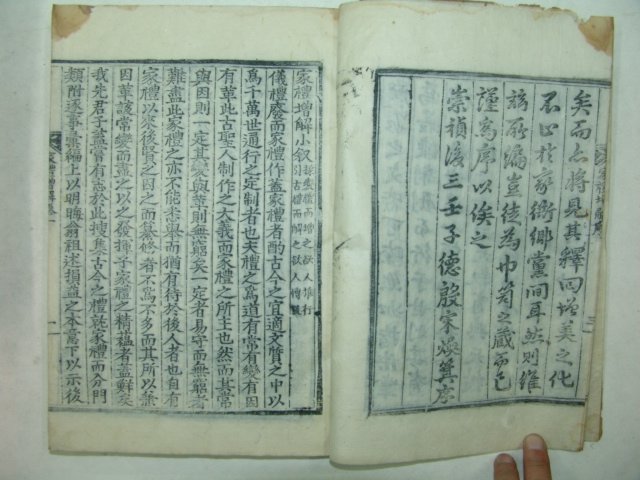 矣而亦將見其釋回增美之化
不止於家衖鄕黨間耳然則維
玆所編豈徒爲巾笥之藏而已
謹爲序以俟之
崇禎後三壬子德殷宋煥箕序
家禮增解小叙
儀禮廢而家禮作蓋家禮者酌古今之宜適文質之中以
爲千萬世通行之定制者也夫禮之爲道有常有變有因
有革此古聖人制作之大義而家禮之所主也然而其常
與因則一定其變與革則無窮矣一定者易守而無窮者
難盡此家禮之亦不能悉擧而猶有待於後人者也自有
家禮以來後賢之因之而纂修者不爲不多而其所以兼
因革該常變而盡之發揮乎家禮之精蘊者蓋鮮矣
我先君子蓋嘗有志於此搜集古今之禮就家禮而分門
類附逐事彙編上以明晦翁祖述損益之本意下以示後